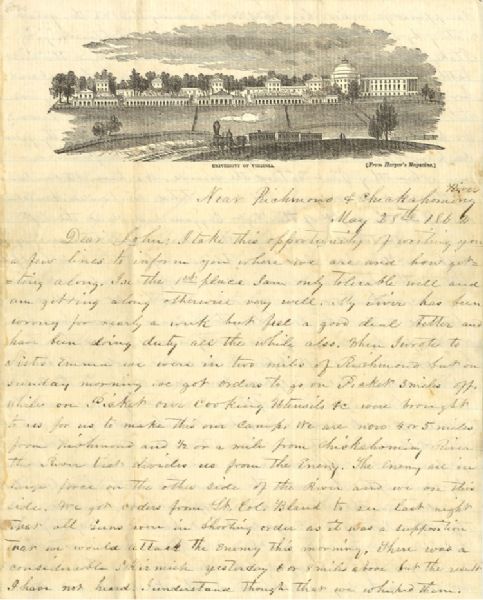 UNIVERSITY OF VIRGINIA.
(From Harper's Magazine.)
Near Richmond & Chickahominy River
May 28th 1862
Dear John, I take this opportunity of writing you
a few lines to inform you where we are and how get-
-ting along. In the 1st place I am only tolerable well and
am getting along otherwise very well. My liver has been
wrong for nearly a week but feel a good deal better and
have been doing duty all the while also. When I wrote to
Sister Emma we were in two miles of Richmond but on
sunday morning we got orders to go on Picket 3 miles off.
while on Picket our Cooking Utensils &c were brought
to us for us to make this our Camp. We are now 4 or 5 miles
from Richmond and 1/2 or a mile from Chickahominy River
the River divides us from the Enemy. The Enemy are in
large force on the other side of the River and we on this
side. We got orders from Lt. Col. Bland to see last night
that all Guns were in Shooting order as it was a supposition
that we would attack the Enemy this morning, There was a
considerable Skirmish yesterday 6 or 8 miles above but the result
I have not heard. I understand though that we whiped them.